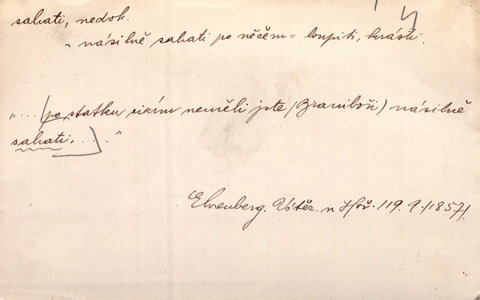 sahati, nedok.
- násilně sahati po něčem = loupiti, krásti.
"... (po statku cizím neměli jste (Braniboři) násilně
sahati, ...)"
Ehrenberg. Vítěz. n Hoř. 119. 9. (1857).